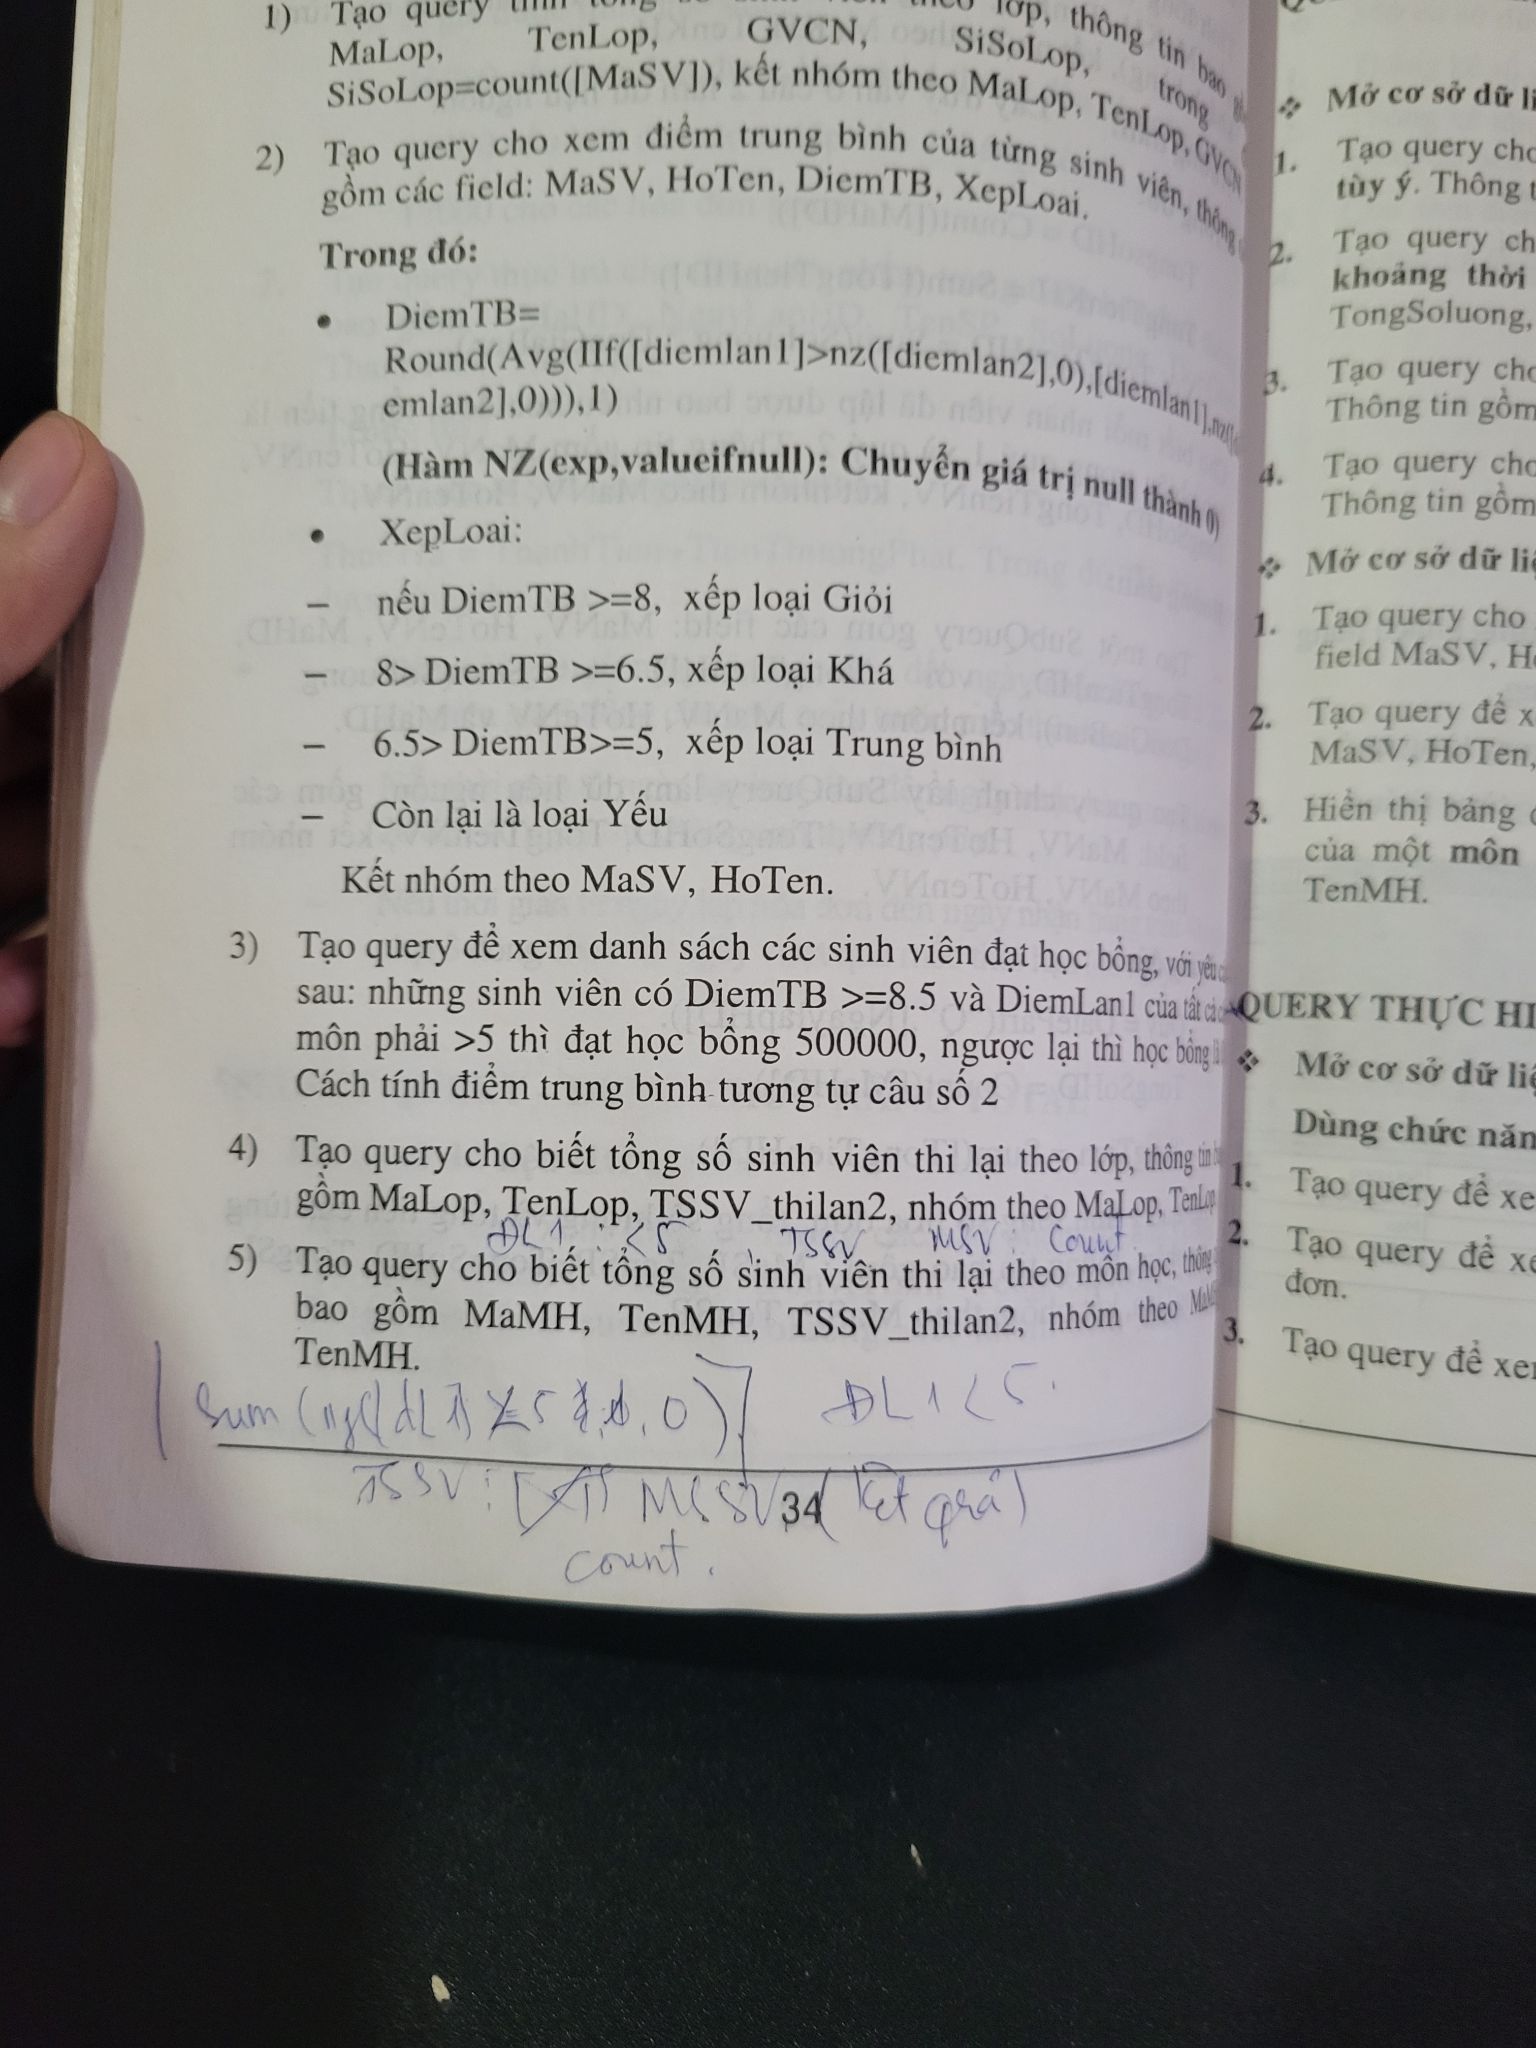 1) Tạo query tính tổng số sinh viên theo lớp, thông tin bao
MaLop, TenLop, GVCN, SiSoLop, trong
SiSoLop=count([MaSV]), kết nhóm theo MaLop, TenLop, GVCN
2) Tạo query cho xem điểm trung bình của từng sinh viên, thông
gồm các field: MaSV, HoTen, DiemTB, XepLoai.
Trong đó:
• DiemTB=
Round(Avg(IIf([diemlan1]>nz([diemlan2],0),[diemlan1],nz([
emlan2],0))),1)
(Hàm NZ(exp,valueifnull): Chuyển giá trị null thành 0)
• XepLoai:
– nếu DiemTB >=8, xếp loại Giỏi
– 8> DiemTB >=6.5, xếp loại Khá
– 6.5> DiemTB>=5, xếp loại Trung bình
– Còn lại là loại Yếu
Kết nhóm theo MaSV, HoTen.
3) Tạo query để xem danh sách các sinh viên đạt học bổng, với yêu
sau: những sinh viên có DiemTB >=8.5 và DiemLan1 của tất cả
môn phải >5 thì đạt học bổng 500000, ngược lại thì học bổng
Cách tính điểm trung bình tương tự câu số 2
4) Tạo query cho biết tổng số sinh viên thi lại theo lớp, thông tin
gồm MaLop, TenLop, TSSV_thilan2, nhóm theo MaLop, TenLop
ĐL 1 : < 5 TSSV MSV : Count
5) Tạo query cho biết tổng số sinh viên thi lại theo môn học, thông
bao gồm MaMH, TenMH, TSSV_thilan2, nhóm theo
TenMH.
Sum ( 5 , 0 ) ĐL 1 < 5.
TSSV : [ MSSV ( kết quả )
34
count .
❖ Mở cơ sở dữ
1. Tạo query
tùy ý. Thông
2. Tạo query
khoảng thời
TongSoluong,
3. Tạo query
Thông tin gồm
4. Tạo query
Thông tin gồm
❖ Mở cơ sở dữ
1. Tạo query cho
field MaSV,
2. Tạo query để
MaSV, HoTen,
3. Hiển thị bảng
của một môn
TenMH.
QUERY THỰC
❖ Mở cơ sở dữ
Dùng chức
1. Tạo query để
2. Tạo query để
đơn.
3. Tạo query để